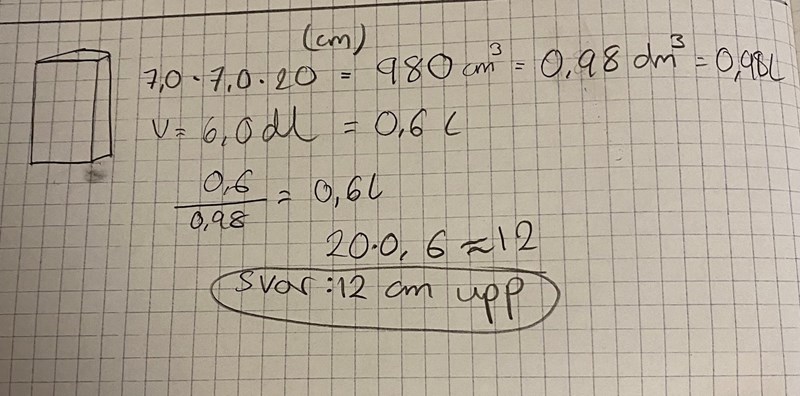 (cm)
7,0 · 7,0 · 20 = 980 cm³ = 0,98 dm³ = 0,98L
V = 6,0 dl = 0,6 L
0,6
0,98
= 0,6L
20·0,6 ≈ 12
Svar: 12 cm upp